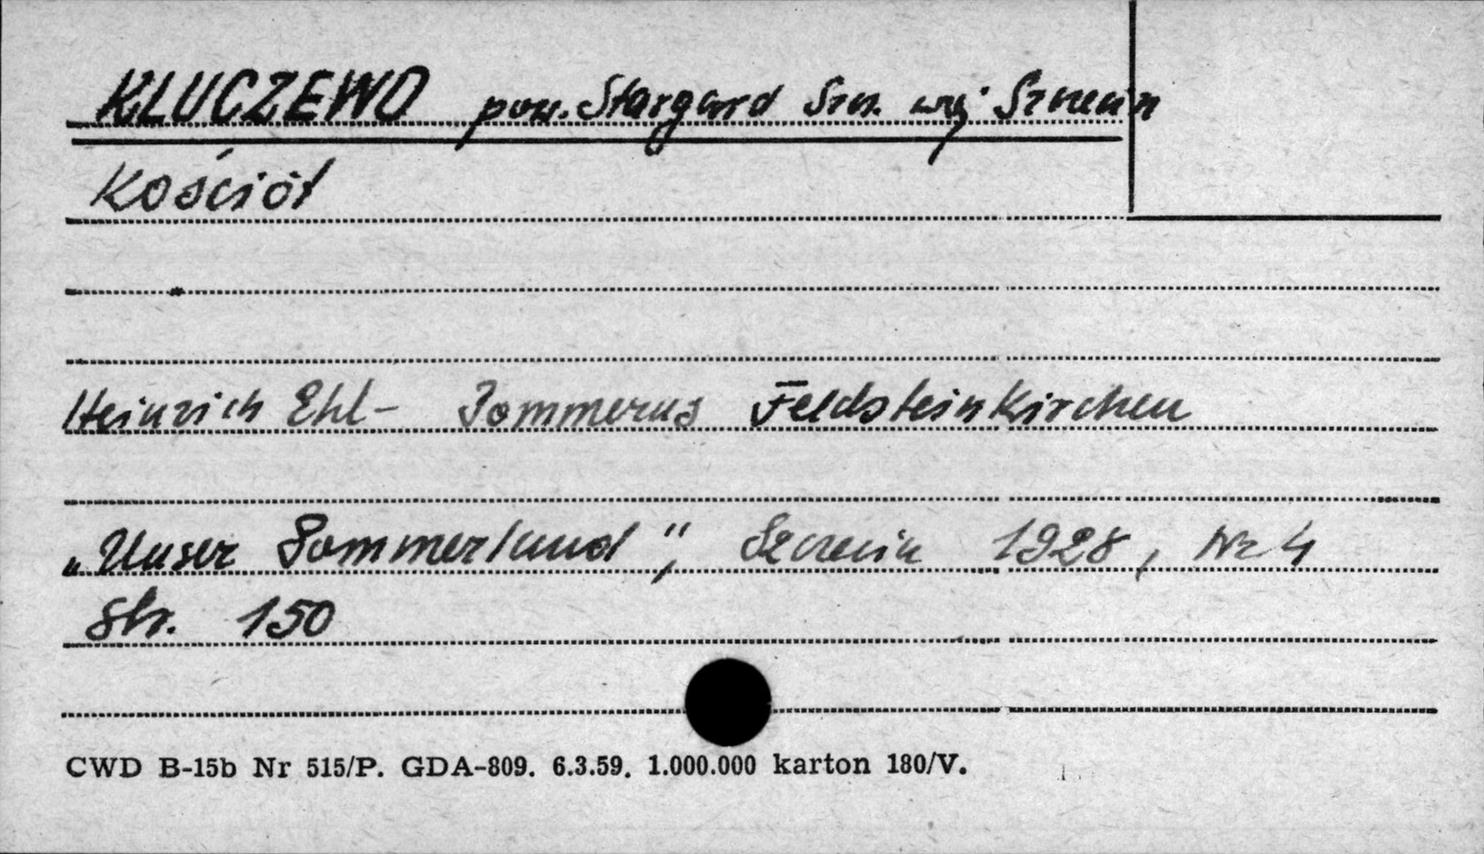 KLUCZEWO pow. Stargard Szcz. woj. Szczecin
Kościół
Heinrich Ehl - Pommerns Feldsteinkirchen
„Unser Pommerland", Szczecin 1928, Nr 4
Str. 150
CWD B-15b Nr 515/P. GDA-809. 6.3.59. 1.000.000 karton 180/V.